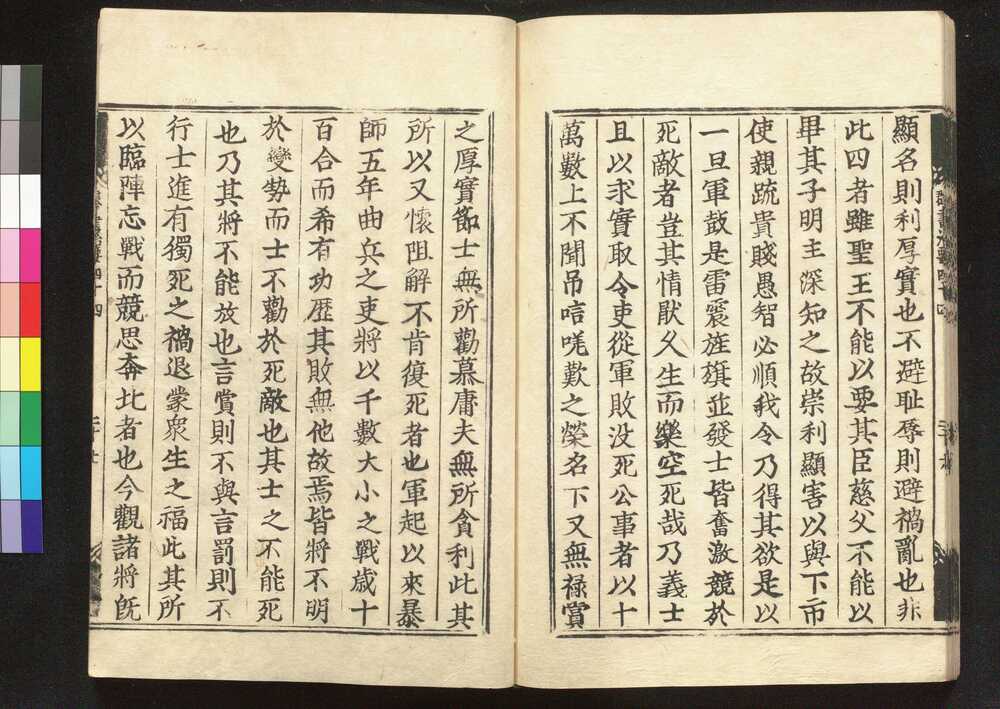 顯名則利厚實也不避耻辱則避禍亂也非
此四者雖聖王不能以要其臣慈父不能以
畢其子明主深知之故崇利顯害以與下市
使親疏貴賤愚智必順我令乃得其欲是以
一旦軍鼓是雷震旌旗並發士皆奮激競於
死敵者豈其情猒久生而樂空死哉乃義士
且以求實取令吏從軍敗没死公事者以十
萬數上不聞吊唁嗟歎之榮名下又無禄賞
之厚實節士無所勸慕庸夫無所貪利此其
所以又懷阻解不肯復死者也軍起以來暴
師五年曲兵之吏將以千數大小之戰歲十
百合而希有功歷其敗無他故焉皆將不明
於變勢而士不勸於死敵也其士之不能死
也乃其將不能放也言賞則不與言罰則不
行士進有獨死之禍退蒙衆生之福此其所
以臨陣忘戰而競思奔北者也今觀諸將旣